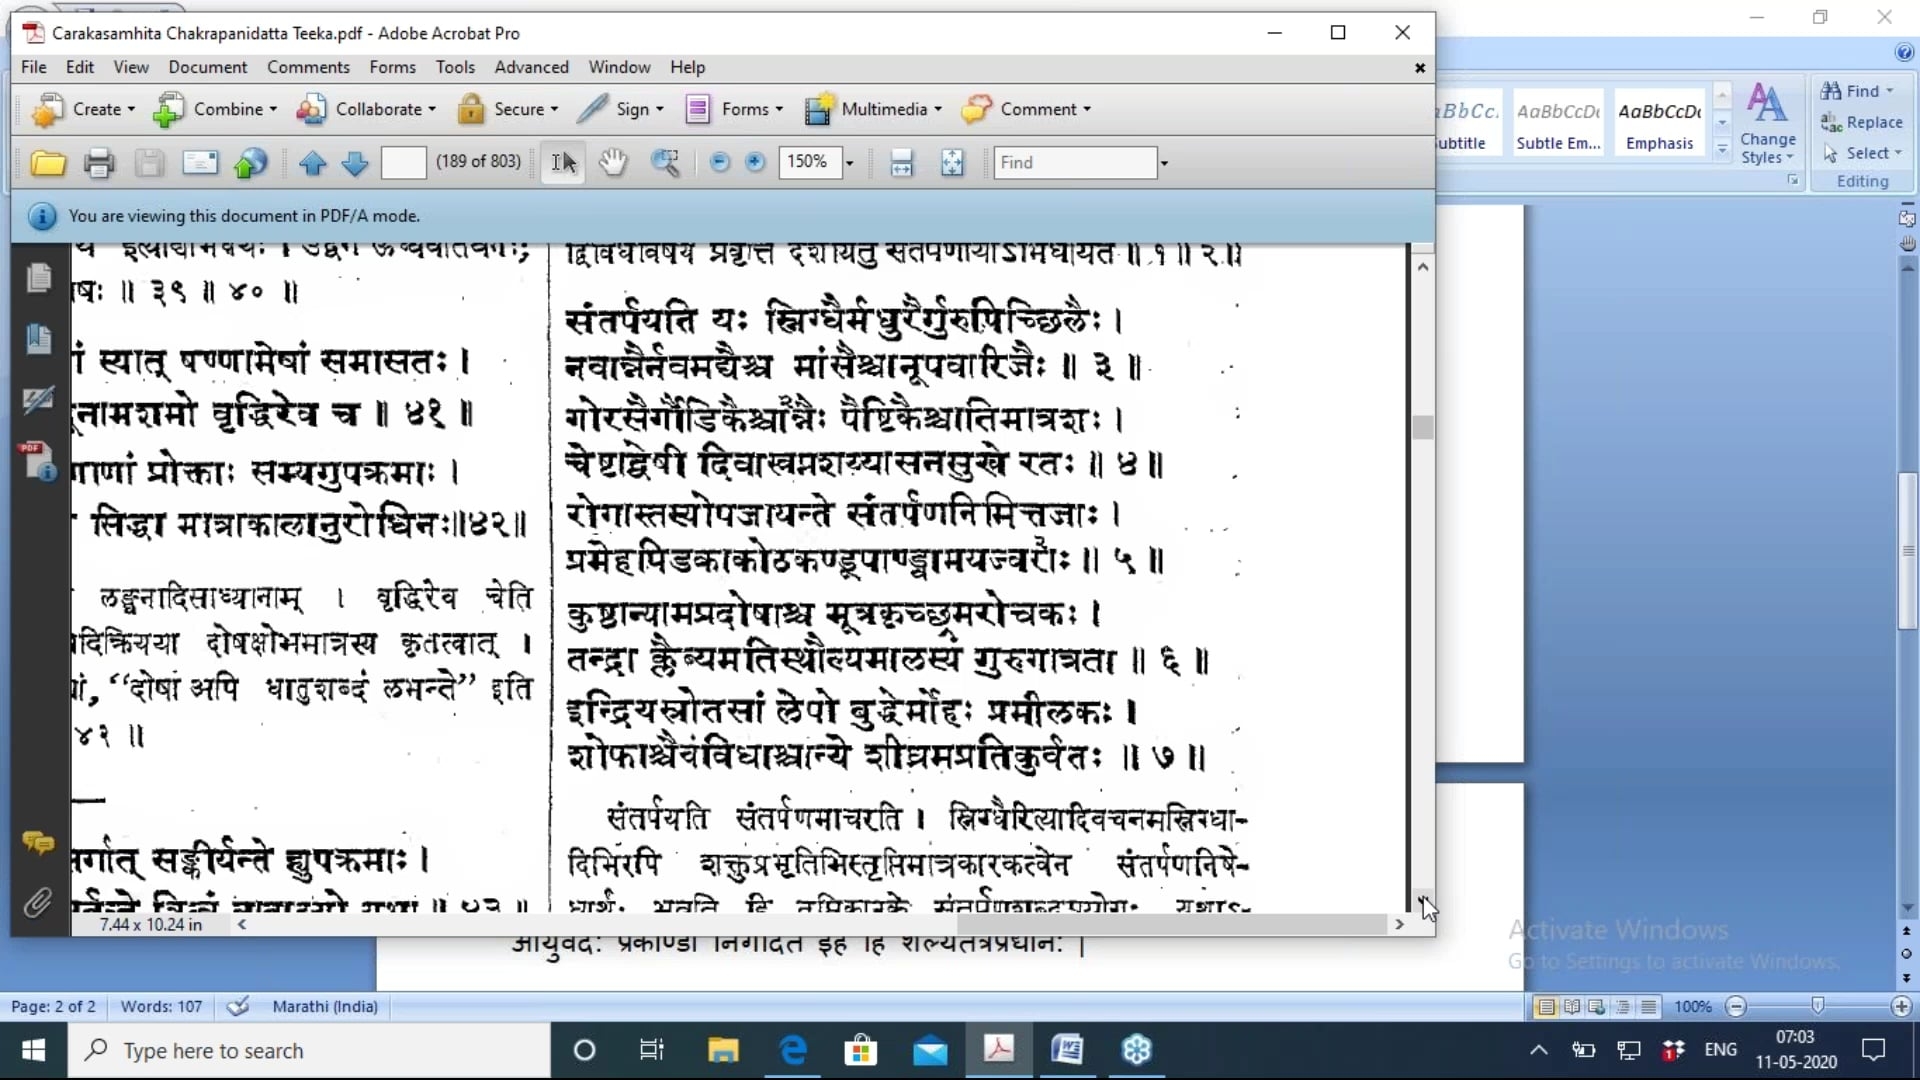 Carakasamhita Chakrapanidatta Teeka.pdf - Adobe Acrobat Pro
File Edit View Document Comments Forms Tools Advanced Window Help
Create Combine Collaborate Secure Sign Forms Multimedia Comment
(189 of 803) 150% Find
You are viewing this document in PDF/A mode.
Subtitle Subtle Em... Emphasis
AaBbCcDc AaBbCcDc
Change Styles
Find
Replace
Select
Editing
॥ ३९ ॥ ४० ॥
स्यात् षण्णामेषां समासतः ।
वृद्धिरेव च ॥ ४१ ॥
प्रोक्ताः सम्यगुपक्रमाः ।
सिद्धा मात्राकालानुरोधिनः॥४२॥
लङ्घनादिसाध्यानाम् । वृद्धिरेव चेति
दोषक्षोभमात्रस्य कृतत्वात् ।
“दोषा अपि धातुशब्दं लभन्ते” इति
४२ ॥
सङ्कीर्यन्ते ह्युपक्रमाः ।
द्विविधविषयं प्रवृत्तिं दर्शयितुं संतर्पणीयोऽभिधीयते ॥ १ ॥ २ ॥
संतर्पयति यः स्निग्धैर्मधुरैर्गुरुपिच्छिलैः ।
नवान्नैर्नवमद्यैश्च मांसैश्चानूपवारिजैः ॥ ३ ॥
गोरसैर्गौडिकैश्चान्नैः पैष्टिकैश्चातिमात्रशः ।
चेष्टाद्वेषी दिवास्वप्नशय्यासनसुखे रतः ॥ ४ ॥
रोगास्तस्योपजायन्ते संतर्पणनिमित्तजाः ।
प्रमेहपिडकाकोठकण्डूपाण्ड्वामयज्वराः ॥ ५ ॥
कुष्ठान्यामप्रदोषाश्च मूत्रकृच्छ्रमरोचकः ।
तन्द्रा क्लैब्यमतिस्थौल्यमालस्यं गुरुगात्रता ॥ ६ ॥
इन्द्रियस्रोतसां लेपो बुद्धेर्मोहः प्रमीलकः ।
शोफाश्चैवंविधाश्चान्ये शीघ्रमप्रतिकुर्वतः ॥ ७ ॥
संतर्पयति संतर्पणमाचरति । स्निग्धैरित्यादिवचनमस्निग्धा-
दिभिरपि शक्तुप्रभृतिभिस्तृप्तिमात्रकारकत्वेन संतर्पणनिषे-
7.44 x 10.24 in
Activate Windows
Go to Settings to activate Windows.
Page: 2 of 2 Words: 107 Marathi (India) 100%
Type here to search
ENG
07:03
11-05-2020